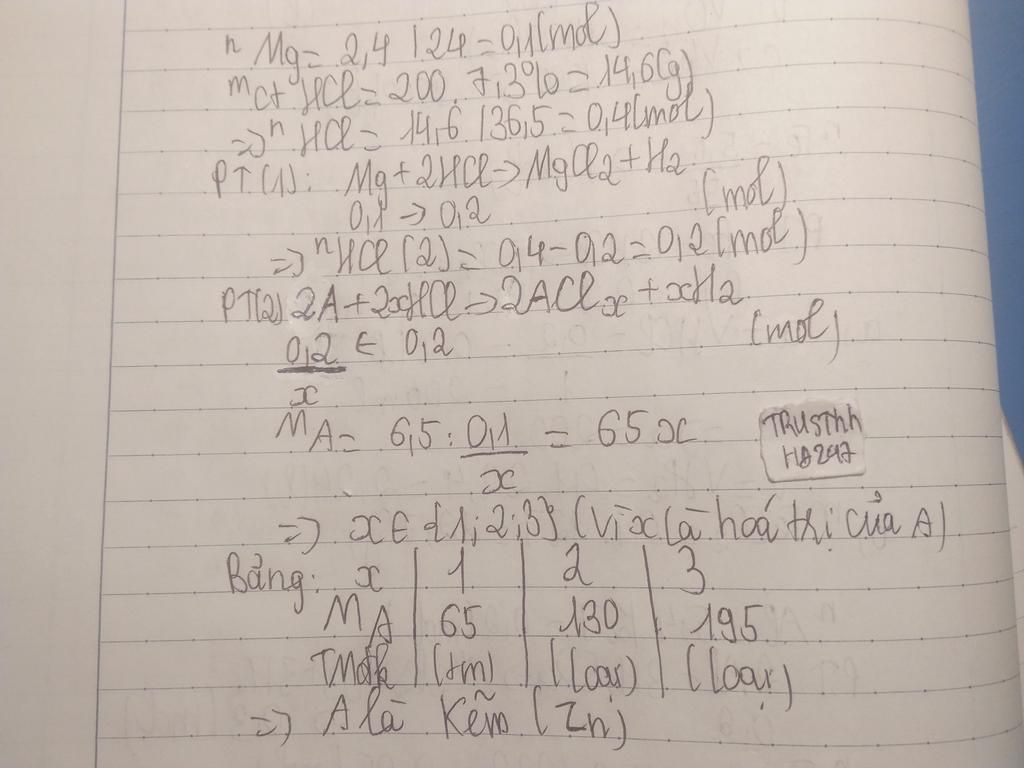 n Mg = 2,4 : 24 = 0,1 (mol)
m ct HCl = 200 . 7,3% = 14,6 (g)
=> n HCl = 14,6 : 36,5 = 0,4 (mol)
PT (1): Mg + 2HCl -> MgCl2 + H2
0,1 -> 0,2 (mol)
=> n HCl (2) = 0,4 - 0,2 = 0,2 (mol)
PT(2) 2A + 2xHCl -> 2AClx + xH2
0,2/x ← 0,2 (mol)
MA = 6,5 : 0,1/x = 65x
TRUSThh
HD247
=> x ∈ {1;2;3} (Vì x là hoá trị của A)
Bảng: x | 1 | 2 | 3
MA | 65 | 130 | 195
(tm) | (loại) | (loại)
=> A là Kẽm (Zn)